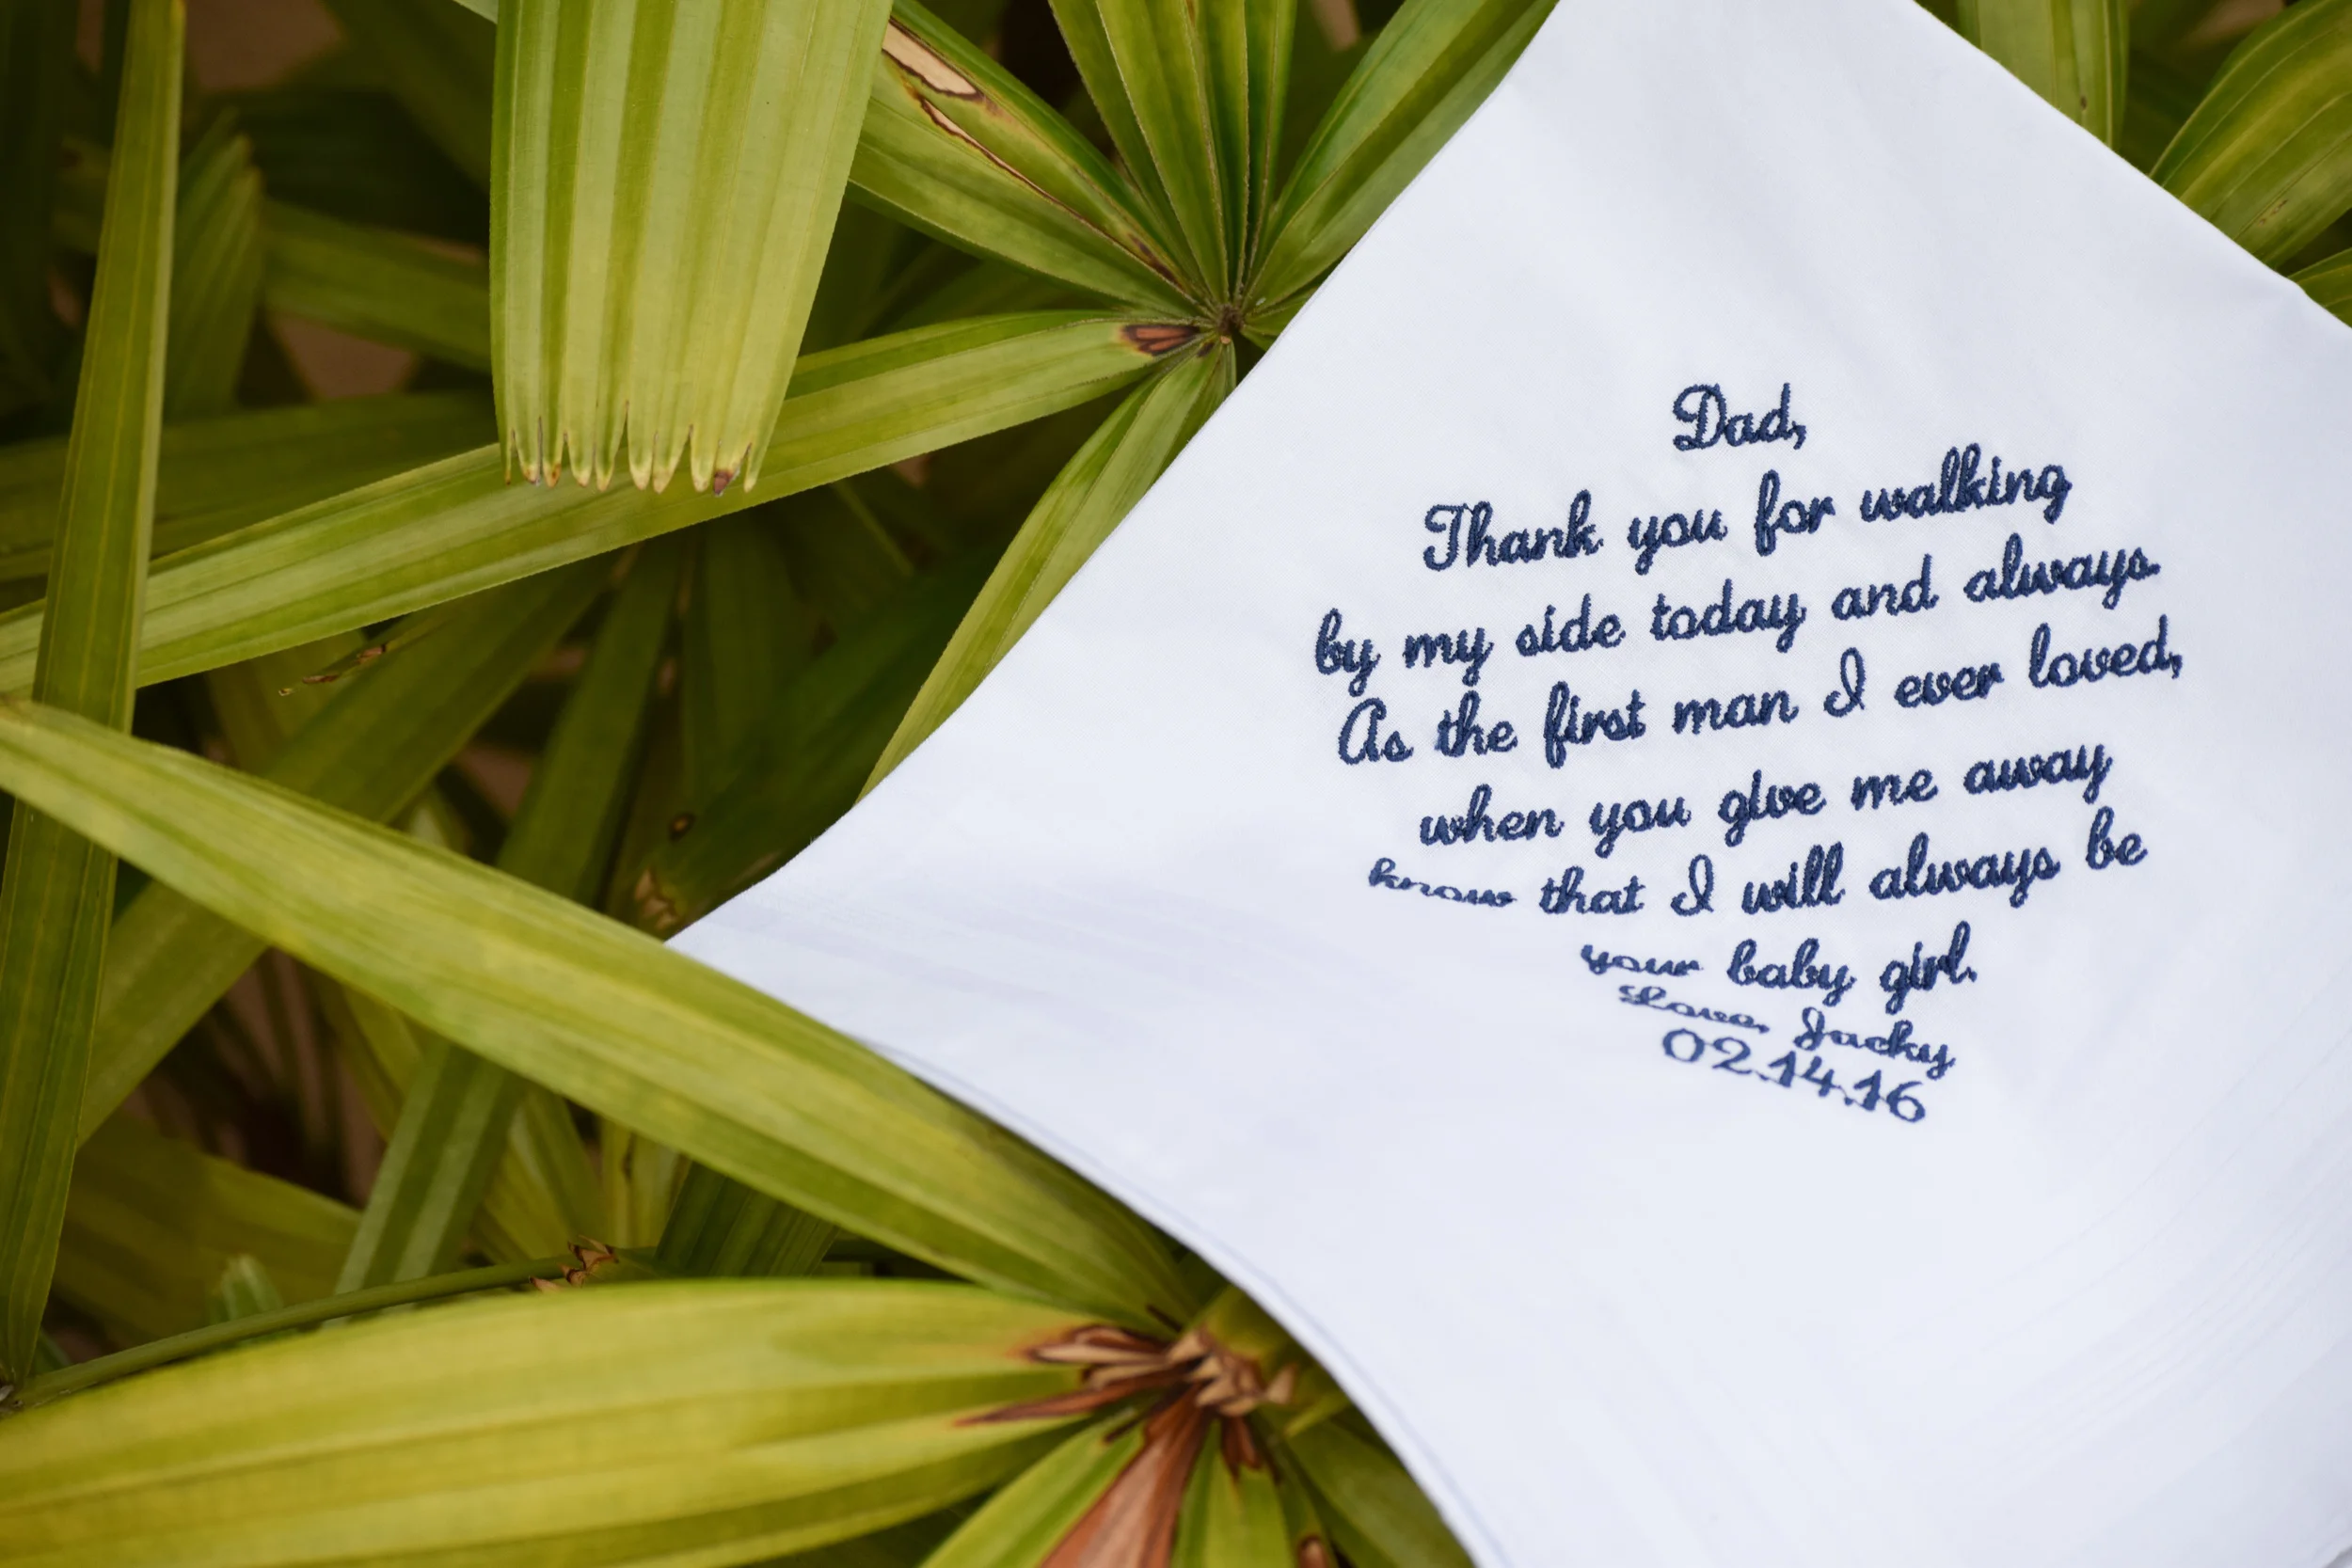 Dad,
Thank you for walking
by my side today and always.
As the first man I ever loved,
when you give me away
know that I will always be
your baby girl.
Love, Jacky
02.14.16